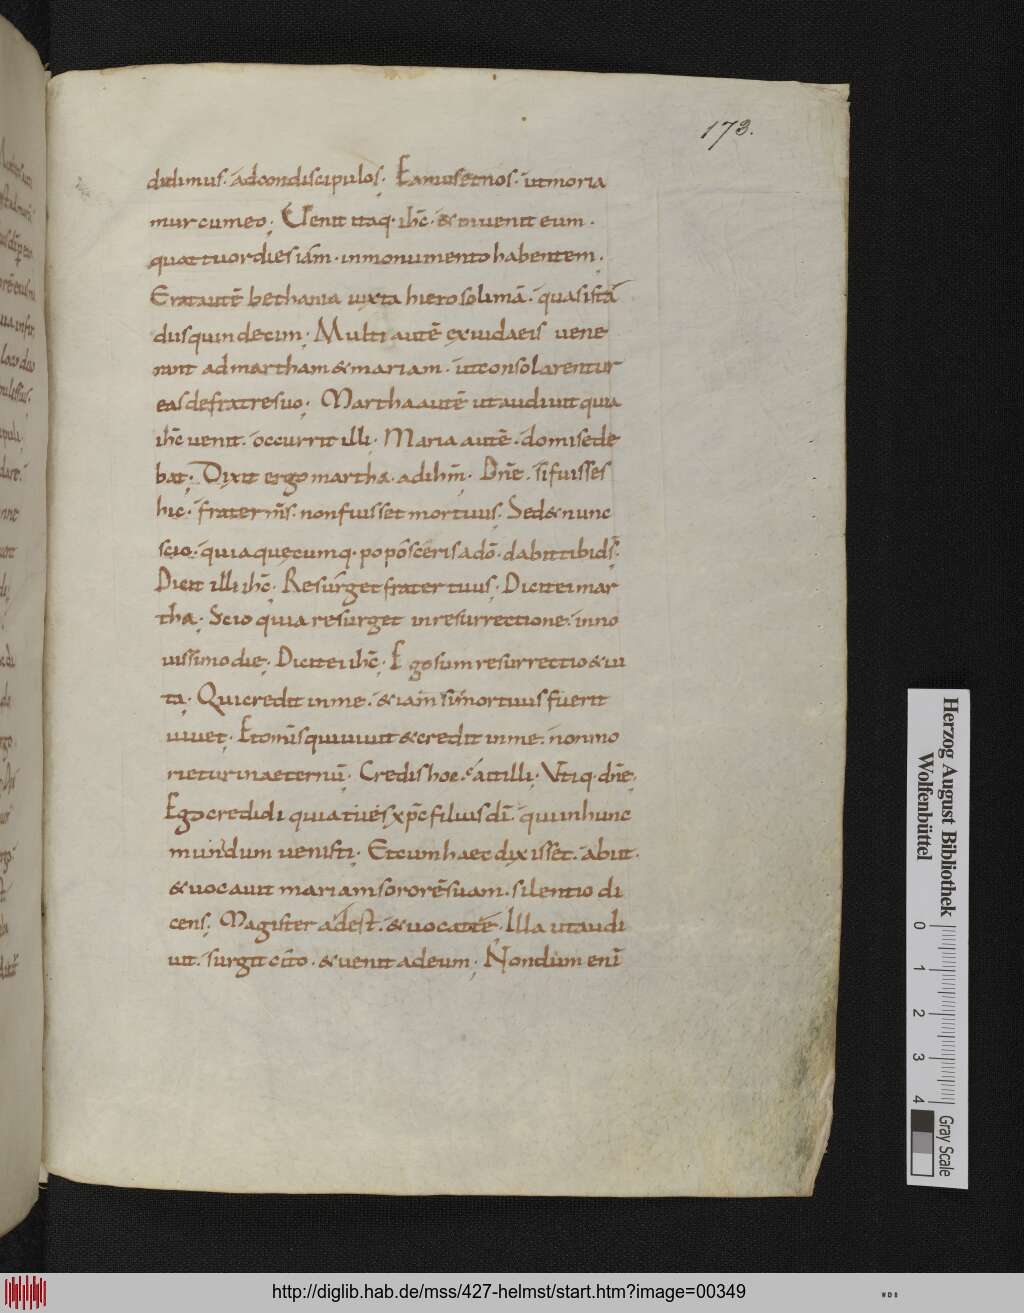 173.
didimus. adcondiscipulos. Eamus&nos. utmoria
mur cumeo. Uenit itaq. ihc̄. & inuenit eum.
quattuordies iam. inmonumento habentem.
Erat autē bethania iuxta hierosolimā. quasi sta
dus quindecim. Multi autē ex iudaeis uene
rant ad martham & mariam. utconsolarentur
eas defratresuo. Martha autē utaudiuit quia
ihc̄ uenit. occurrit illi. Maria autē. domi sede
bat. Dixit ergo martha. ad ihm̄. Dnē. si fuisses
hic. frater ms̄. nonfuisset mortuus. Sed & nunc
scio. quia quęcumq. poposceris a dō. dabit tibi ds̄.
Dicit illi ihc̄. Resurget frater tuus. Dicit ei mar
tha. Scio quia resurget in resurrectione. in no
uissimo die. Dicit ei ihc̄. Ego sum resurrectio & ui
ta. Qui credit in me. & iam si mortuus fuerit
uiuet. Et omīs qui uiuit & credit in me. non mo
rietur in aeternū. Credis hoc. ait illi. Utiq. dnē.
Ego credidi quia tu es xpc̄ filius dī. qui in hunc
mundum uenisti. Et cum haec dixisset. abiit.
& uocauit mariam sororē suam. silentio di
cens. Magister adest. & uocat te. Illa ut audi
uit. surgit cito. & uenit ad eum. Nondum enī
Herzog August Bibliothek
Wolfenbüttel
0 1 2 3 4
Gray Scale
http://diglib.hab.de/mss/427-helmst/start.htm?image=00349